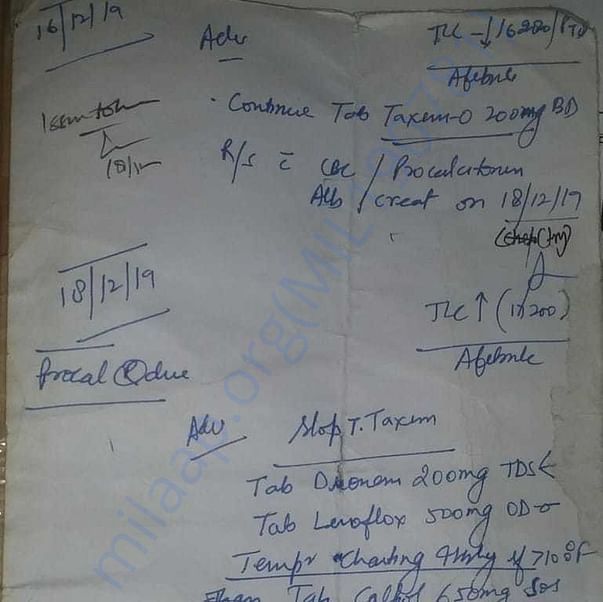 16/12/19
Adv
TLC - ↓ 16200
Afebrile
18/12
Continue Tab Taxem-O 200mg BD
R/s c̄ CBC / Procalcitonin
Alb / creat on 18/12/19
18/12/19
TLC ↑ (17200)
Afebrile
Procal due
Adv Stop T. Taxem
Tab 200mg TDS
Tab Levoflox 500mg OD
Tempr Charting 4hrly if >100°F
Tab Calpol 650mg SOS
milaap.org